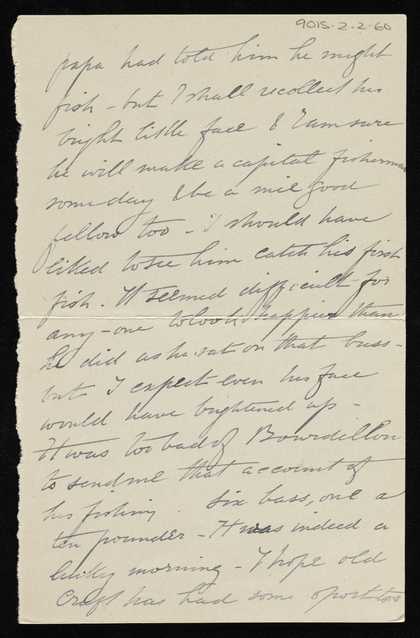 9015-2-2-60
papa had told him he might
fish - but I shall recollect his
bright little face & I am sure
he will make a capital fisherman
some day & be a nice good
fellow too - I should have
liked to see him catch his first
fish. It seemed difficult for
any-one to look happier than
he did as he sat on that bass -
but I expect even his face
would have brightened up -
It was too bad of Bourdillon
to send me that account of
his fishing. Six bass, one a
ten pounder - It was indeed a
lucky morning - I hope old
Croft has had some sport too